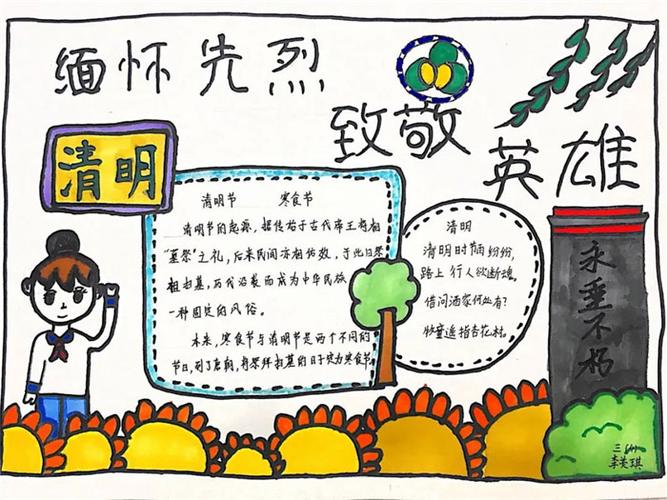 缅怀先烈
致敬
英雄
清明
清明节 寒食节
清明节的起源，据传始于古代帝王将相
“墓祭”之礼，后来民间亦相仿效，于此日祭
祖扫墓，历代沿袭而成为中华民族
一种固定的风俗。
本来，寒食节与清明节是两个不同的
节日，到了唐朝，将祭拜扫墓的日子定为寒食节
清明
清明时雨纷纷，
路上行人欲断魂。
借问酒家何处有？
牧童遥指杏花村。
永垂不朽
李美琪